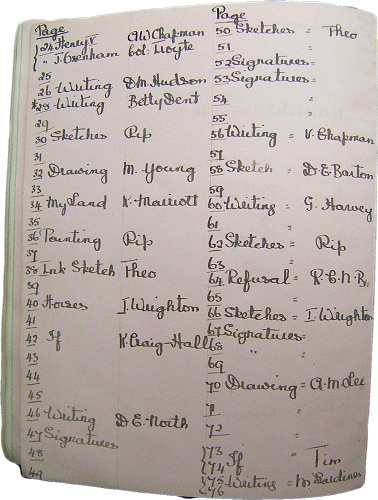 Page
24 Henry V A.W. Chapman
" J. Oxenham Col. Hoyte
25
26 Writing D.M. Hudson
*28 Writing Betty Dent
29
30 Sketches Pip
31
32 Drawing M. Young
33
34 My Land K. Marriott
35
36 Painting Pip
37
38 Ink Sketch Theo
39
40 Horses I. Wrighton
41
42 If K. Craig-Hall
43
44
45
46 Writing D.E. North
47 Signatures
48
49
Page
50 Sketches = Theo
51 "
52 Signatures=
53 Signatures=
54 "
55 "
56 Writing = V. Chapman
57
58 Sketch = D.E. Barton
59
60 Writing = G. Harvey
61
62 Sketches = Pip
63
64 Refusal = R.C.N.B.
65
66 Sketches = I. Wrighton
67 Signatures=
68 " "
69
70 Drawing = A.M. Lee
71 "
72 "
73 If = Tim
74
75 Writing =
76